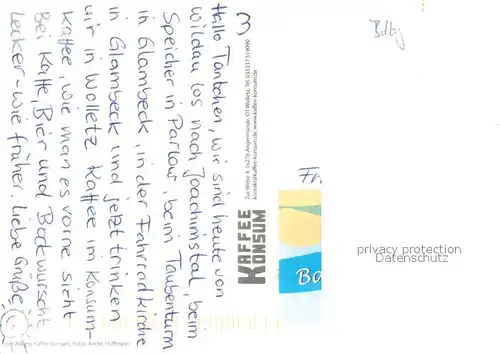 Hallo Tantchen, wir sind heute von
Wildau los nach Joachimstal, beim
Speicher in Parlow, beim Taubenturm
in Glambeck, in der Fahrradkirche
in Glambeck und jetzt trinken
wir in Wolletz Kaffee im Konsum-
Kaffee, wie man es vorne sieht
Bei Kaffe, Bier und Bockwurscht
Lecker - wie früher. Liebe Grüße
3
Zur Welse 4, 16278 Angermünde, OT Wolletz, Tel. 033337 519090
kontakt@kaffee-konsum.de, www.kaffee-konsum.de
KAFFEE
KONSUM
Wolletz, Kaffee-Konsum, Fotos: Andre, Hoffmann
Bdbg
Fr
Ba
privacy protection
Datenschutz